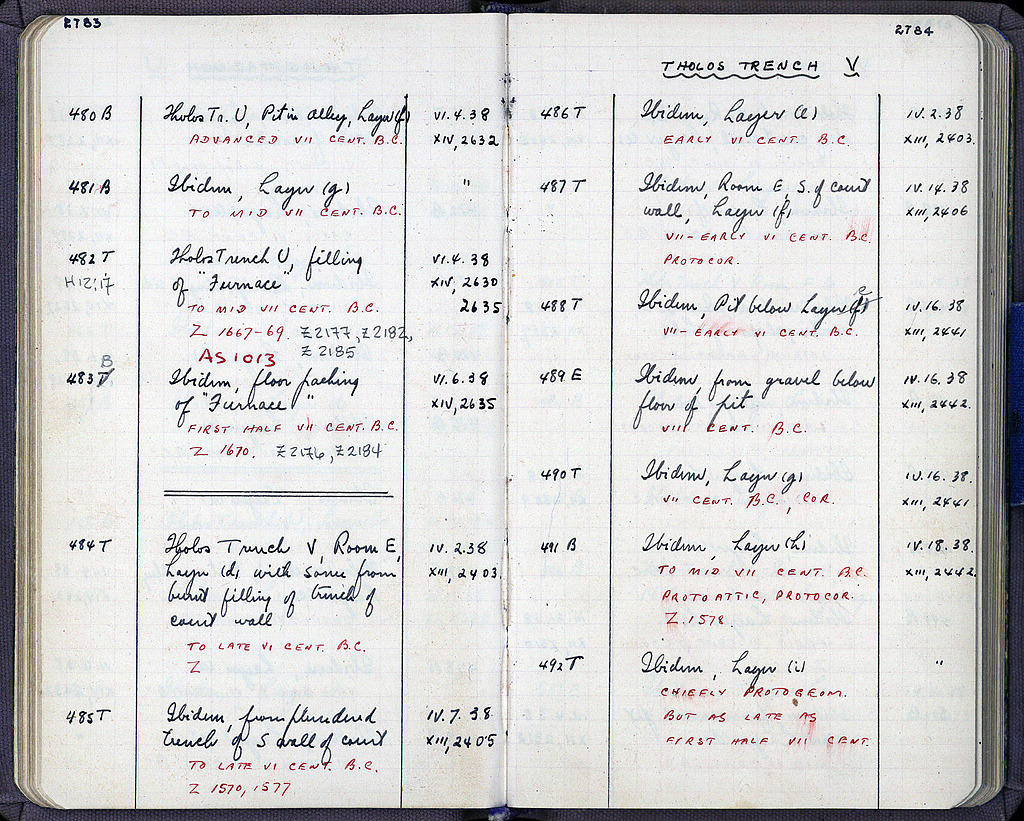 2783
480 B Tholos Tr. U, Pit in alley, Layer (f) VI.4.38
ADVANCED VII CENT. B.C. XIV, 2632
481 B Ibidem, Layer (g) "
TO MID VII CENT. B.C.
482 T Tholos Trench U, filling VI.4.38
H12:17 of "Furnace" XIV, 2630
TO MID VII CENT. B.C. 2635
Z 1667-69. Z2177, Z2182,
AS 1013 Z 2185
B
483 T Ibidem, floor packing VI.6.38
of "Furnace" XIV, 2635
FIRST HALF VII CENT. B.C.
Z 1670. Z2176, Z2184
484 T Tholos Trench V, Room E, IV.2.38
Layer (d) with some from XIII, 2403.
burnt filling of trench of
court wall
TO LATE VI CENT. B.C.
Z
485 T Ibidem, from plundered IV.7.38.
trench of S wall of court XIII, 2405
TO LATE VI CENT. B.C.
Z 1570, 1577
2784
THOLOS TRENCH V
486 T Ibidem, Layer (e) IV.2.38
EARLY VI CENT. B.C. XIII, 2403.
487 T Ibidem, Room E, S. of court IV.14.38
wall, Layer (f) XIII, 2406
VII-EARLY VI CENT. B.C.
PROTOCOR.
488 T Ibidem, Pit below Layer IV.16.38
VII-EARLY VI CENT. B.C. XIII, 2441
489 E Ibidem, from gravel below IV.16.38
floor of pit. XIII, 2442.
VIII CENT. B.C.
490 T Ibidem, Layer (g) IV.16.38.
VII CENT. B.C., COR. XIII, 2441
491 B Ibidem, Layer (h) IV.18.38.
TO MID VII CENT. B.C. XIII, 2442.
PROTOATTIC, PROTOCOR.
Z 1578
492 T Ibidem, Layer (i) "
CHIEFLY PROTOGEOM.
BUT AS LATE AS
FIRST HALF VII CENT.